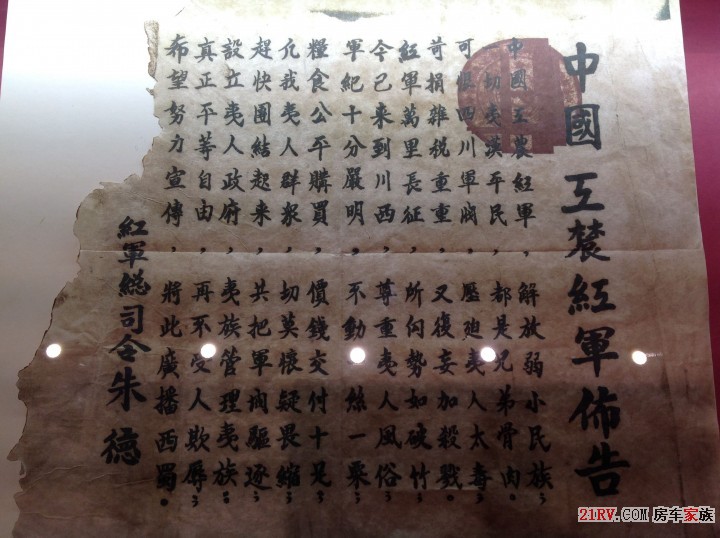 中國工農紅軍佈告
中國工農紅軍，解放弱小民族；
一切夷漢平民，都是兄弟骨肉。
可恨四川軍閥，壓廹夷人太毒；
苛捐雜税重重，又復妄加殺戮。
紅軍萬里長征，所向勢如破竹；
今已来到川西，尊重夷人風俗。
軍紀十分嚴明，不動絲一粟；
糧食公平購買，價錢交付十足。
凢我夷人群衆，切莫懷疑畏縮；
趕快團結起来，共把軍閥驅逐；
設立夷人政府，夷族管理夷族；
真正平等自由，再不受人欺辱；
希望努力宣傳，將此廣播西蜀。
紅軍總司令朱德
21RV.COM 房车家族